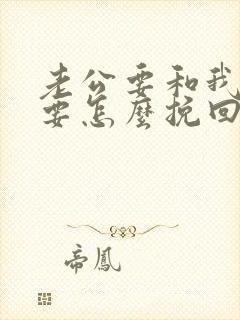 老公要和我
要怎麼挽回
帝鳳